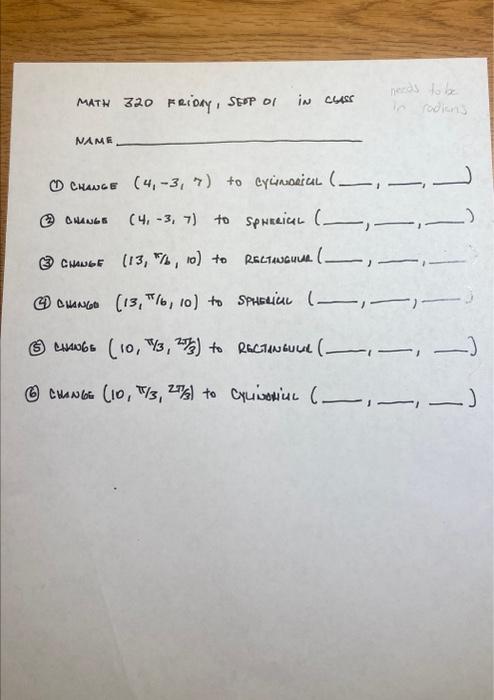 MATH 320 FRIDAY, SEPT 01 IN CLASS
needs to be
in radians
NAME
① CHANGE (4, -3, 7) to CYLINDRICAL (___, ___, ___)
② CHANGE (4, -3, 7) to SPHERICAL (___, ___, ___)
③ CHANGE (13, π/6, 10) to RECTANGULAR (___, ___, ___)
④ CHANGE (13, π/6, 10) to SPHERICAL (___, ___, ___)
⑤ CHANGE (10, π/3, 2π/3) to RECTANGULAR (___, ___, ___)
⑥ CHANGE (10, π/3, 2π/3) to CYLINDRICAL (___, ___, ___)